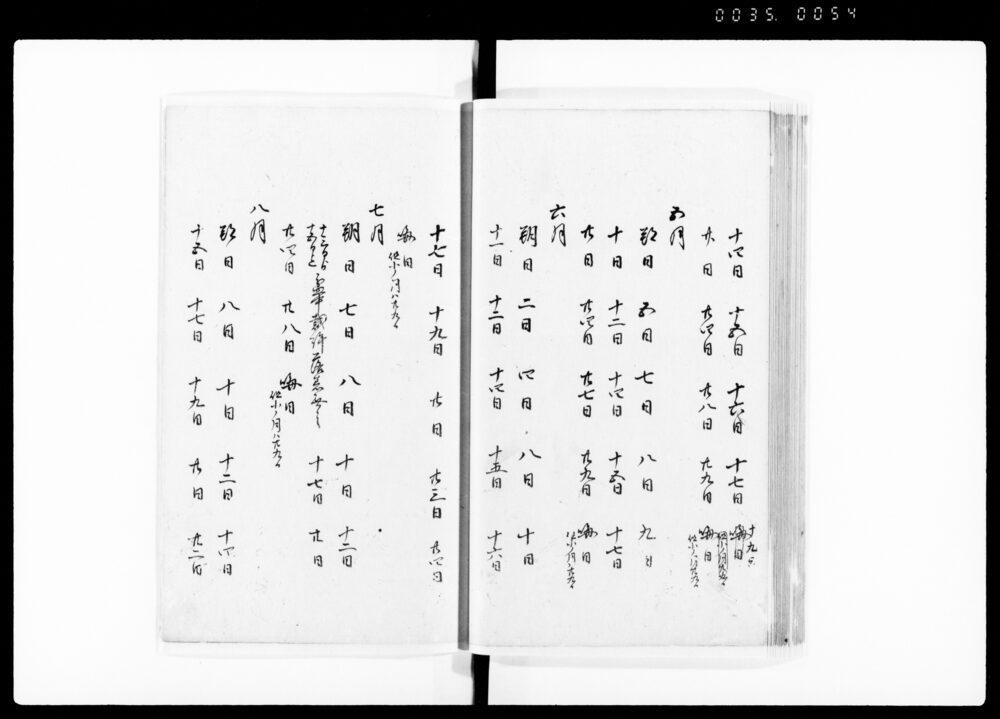 0035. 0054
十四日 十五日 十六日 十七日 十九日
廿日 廿四日 廿八日 廿九日 晦日
五月
朔日 五日 七日 八日 九日
十日 十二日 十四日 十五日 十七日
廿日 廿四日 廿七日 廿九日 晦日
六月
朔日 二日 四日 八日 十日
十一日 十二日 十四日 十五日 十六日
十七日 十九日 廿日 廿三日 廿四日
晦日 但小ノ月ハ廿九日
七月
朔日 七日 八日 十日 十二日
十七日 廿日
廿四日 廿八日 晦日 但小ノ月ハ廿九日
八月
朔日 八日 十日 十二日 十四日
十五日 十七日 十九日 廿日 廿二日